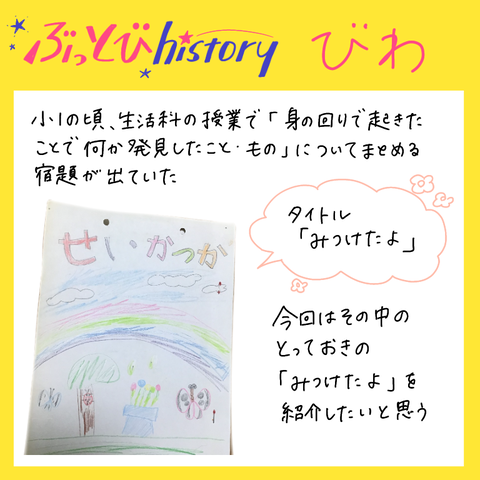 ぶっとびhistory びわ
小1の頃、生活科の授業で「身の回りで起きた
ことで何か発見したこと・もの」についてまとめる
宿題が出ていた
タイトル
「みつけたよ」
せいかつか
今回はその中の
とっておきの
「みつけたよ」を
紹介したいと思う